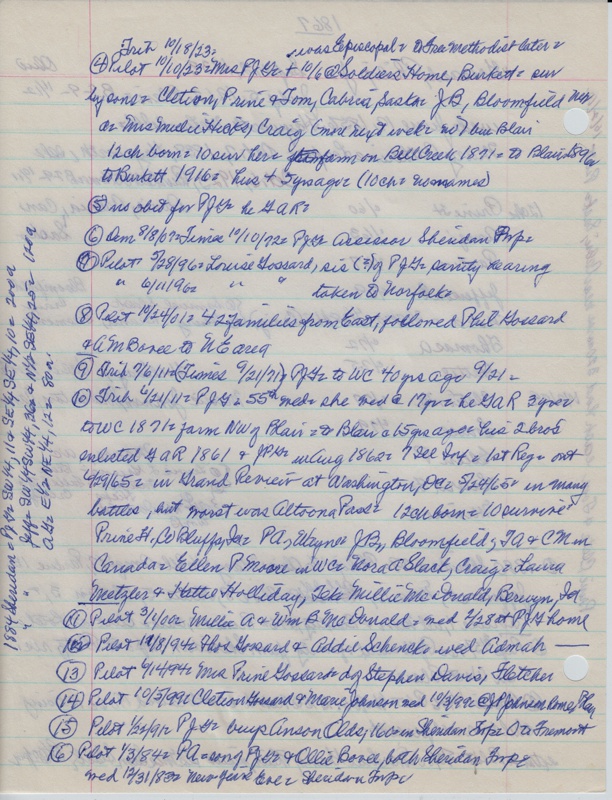 Trib 10/18/23= was Episcopal= to Free Methodist later=
④ Pilot 10/10/23= Mrs PJG= + 10/6 @ Soldiers Home, Burkett= sur
by sons= Cletion, Prine & Tom, Cabria, Saska= J.B., Bloomfield
or Mrs Melie Hicks, Craig (more next week= no) bur Blair
12ch born= 10 sur her= farm on Bell Creek 1871= to Blair 1896
to Burkett 1916= hus + 5 yrs ago= (10ch= no names)
⑤ no obit for PJG= he GAR=
⑥ Dem 8/8/07= Times 10/10/72= PJG= Assessor Sheridan Twp=
⑦ Pilot 5/28/96= Louise Gossard, sis (?) of PJG= sanity hearing
" 6/11/96= " " taken to Norfolk=
⑧ Pilot 10/24/01= 42 families from East, followed Phil Gossard
& A M Bovee to NE area
⑨ Trib 9/6/11= (Times 9/21/71) PJG= to WC 40 yrs ago 9/21=
⑩ Trib 4/21/11= PJG= 55th wed= she wed @ 17yr= he GAR 3 yrs=
to WC 1871= farm NW of Blair= to Blair @ 15 yrs ago= his 2 bros
enlisted GAR 1861 & PJG= in Aug 1862= 7 Sec Inf= 1st Reg= out
4/29/65= in Grand Review at Washington, DC= 5/24/65= in many
battles, but worst was Altoona Pass= 12ch born= 10 survive=
Prine H, Co Bluffs, Ia= PA, Wayne= J.B., Bloomfield; TA & CM in
Canada= Ellen P Moore in WC= Nora A Slack, Craig= Laura
Metzler & Hattie Holliday, Teka= Millie MacDonald, Berwyn, Ia
⑪ Pilot 3/1/00= Millie A & Wm B MacDonald= wed 2/28 at PJG home
⑫ Pilot 10/8/94= Thos Gossard & Addie Schenck= wed Admah —
⑬ Pilot 6/14/94= Mrs Prine Gossard= d of Stephen Davis, Fletcher
⑭ Pilot 10/5/99= Cletion Gossard & Marie Johnson wed 10/3/99 @ Jt Johnson home, Blair
⑮ Pilot 1/20/91= PJG= buys Anson Olds, 160a in Sheridan Twp= O to Fremont
⑯ Pilot 1/3/84= PA= son of PJG= & Ollie Bovee, both Sheridan Twp=
wed 12/31/83= New Years Eve= Sheridan Twp=
1884 Sheridan= PJG= SW¼, 11= SE¼ SE¼, 10= 200a
" " PJG= SW¼ SW¼, 36= & N½ SE¼, 25= 120a
AG= E½ NE¼, 12= 80a=